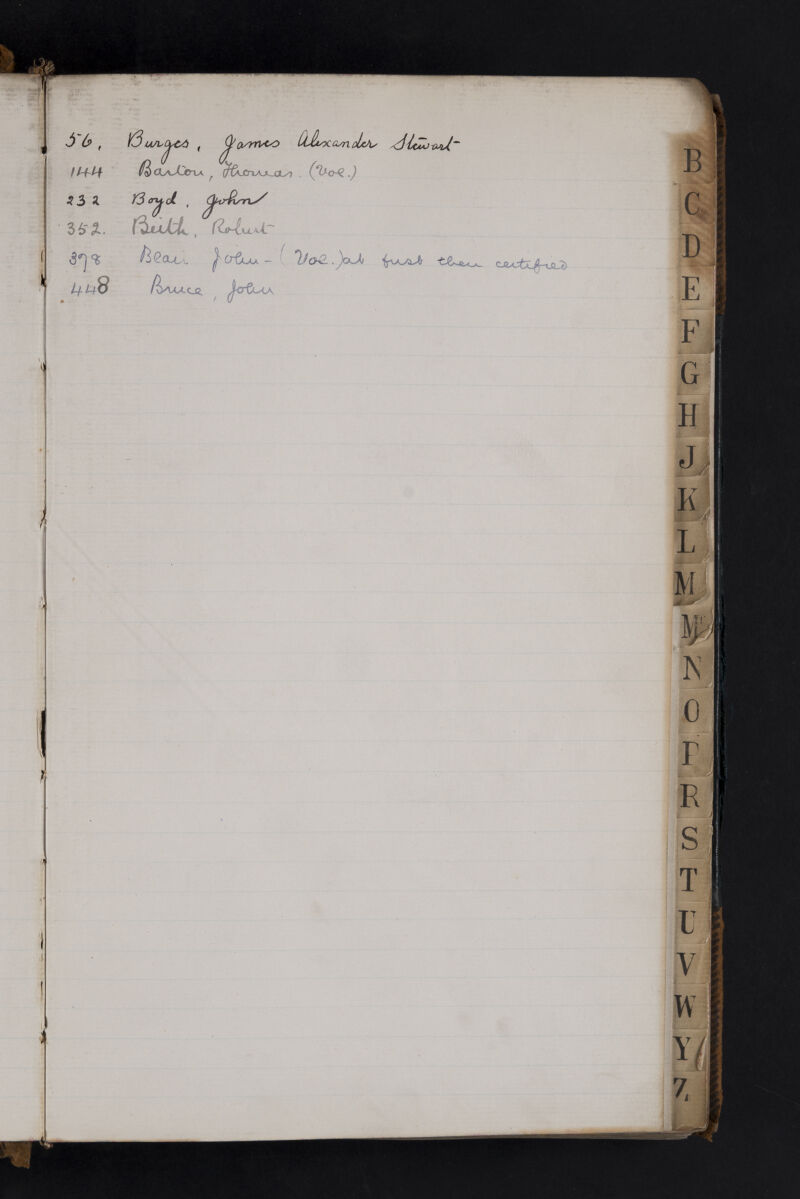 56, Burges, James Alexander Stewart
144 Barton, Thomas. (Vol.)
232 Boyd, John
352. Beith, Robert
378 Bean John - (Vol.) at first then certified
448 Bruce, John
B
C
D
E
F
G
H
J
K
L
M
Mc
N
O
P
R
S
T
U
V
W
Y
Z